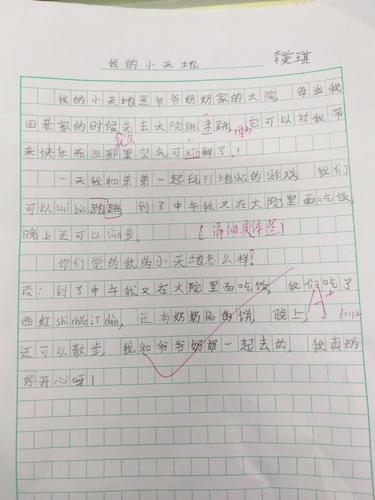 我的小天地
我的小天地是爷爷奶奶家的大院 每当我
回老家的时候先去大院跳来跳 因为它可以给我带
来快乐而且那里空气可xin鲜了。!
一天我和弟弟一起玩打地shǔ的游戏 我们
可以 到了中午我又在大院里面吃饭,
晚上还可以sàn步。(详细具体些)
你们觉的我的小天地怎么样?
改:到了中午我又在大院里面吃饭, 我们吃了
西红shì chǎo jī dàn, 还有奶奶 的饼, 晚上,
还可以散步, 我和爷爷奶奶一起去的, 我真的
好开心呀!